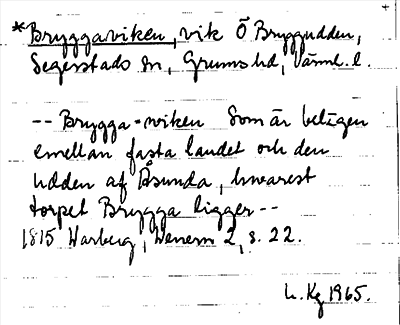 *Bryggaviken, vik Ö Bryggudden,
Segerstads sn, Grums hd, Värml. l.
-- Brygga-wiken Som är belägen
emellan fasta landet och den
udden af Åsunda, hwarest
torpet Brygga ligger --
1815 Warberg, Wenern 2, s. 22.
Kg 1965.